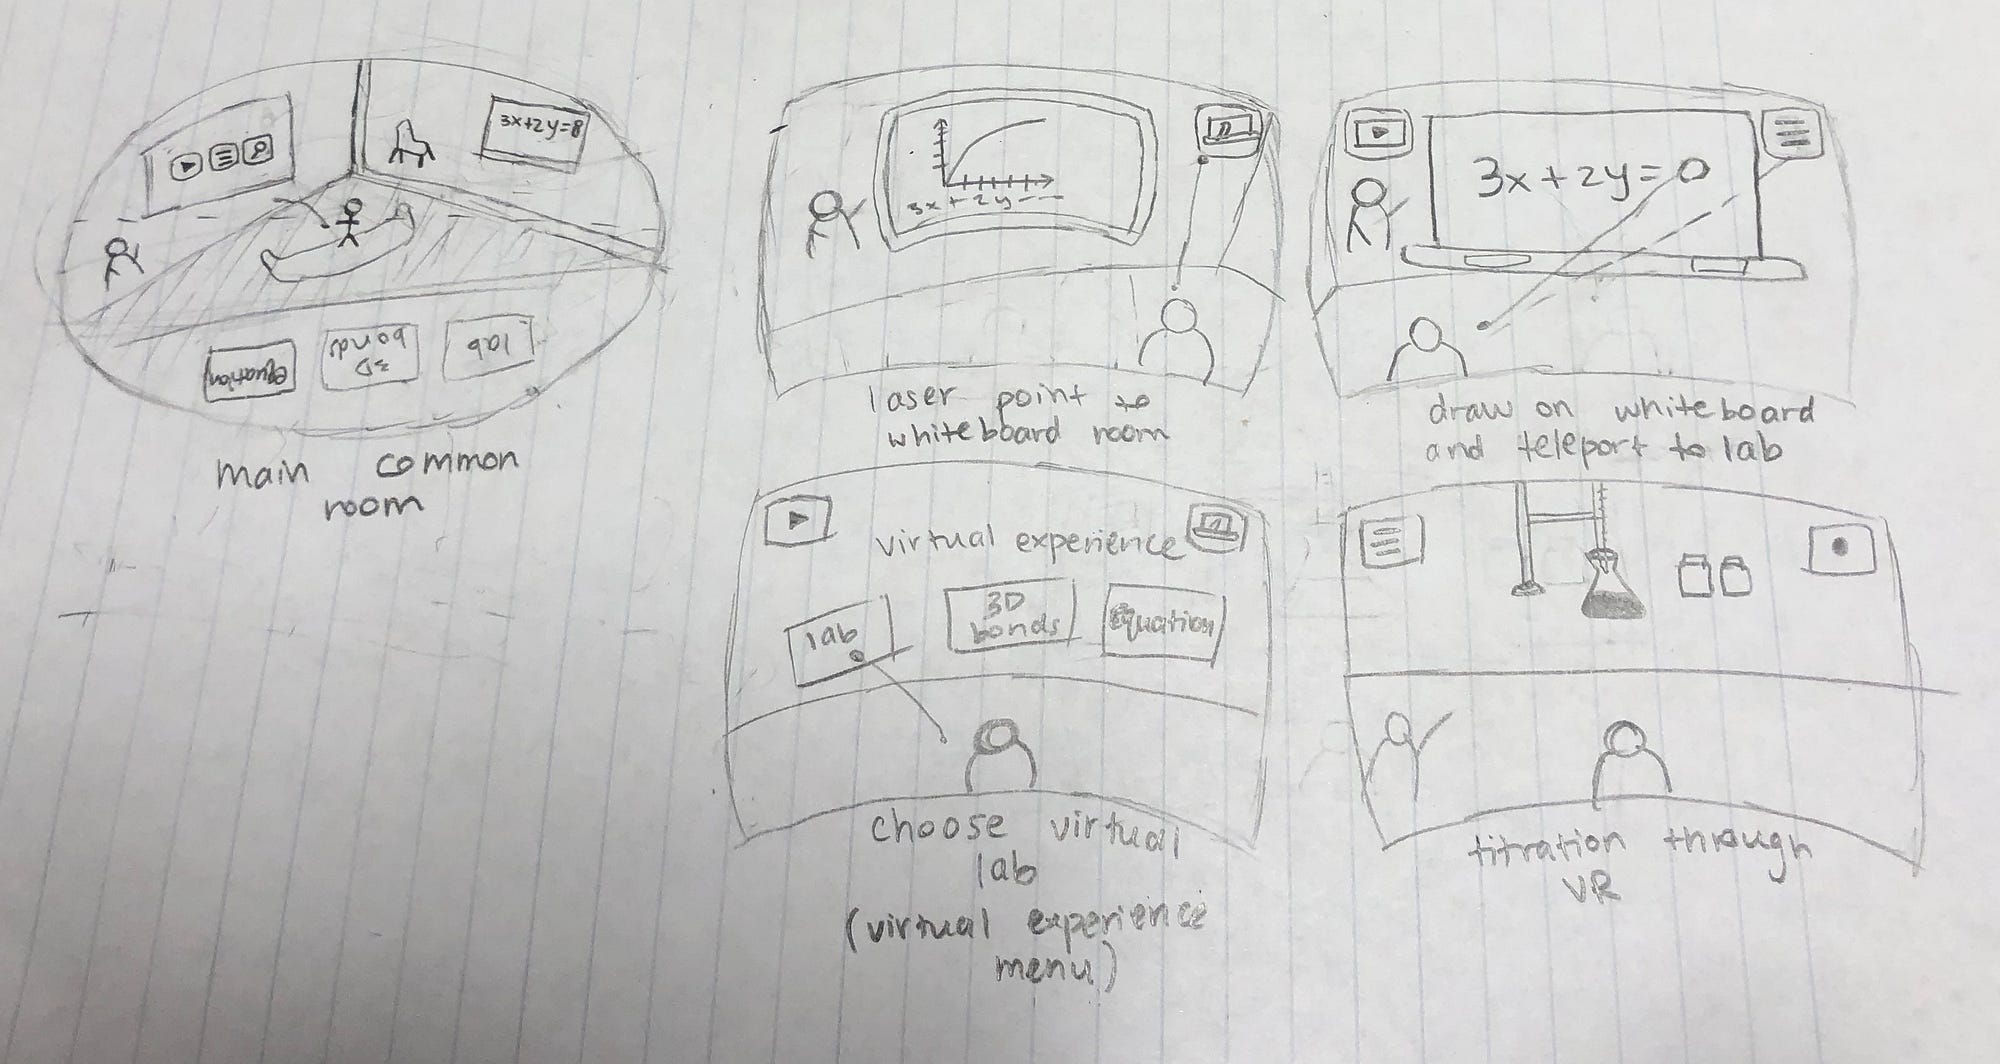 3x+2y=8
equation
3D
bonds
lab
main common
room
3x + 2y
laser point to
whiteboard room
3x + 2y = 0
draw on whiteboard
and teleport to lab
virtual experience
lab
3D
bonds
equation
choose virtual
lab
(virtual experience
menu)
titration through
VR